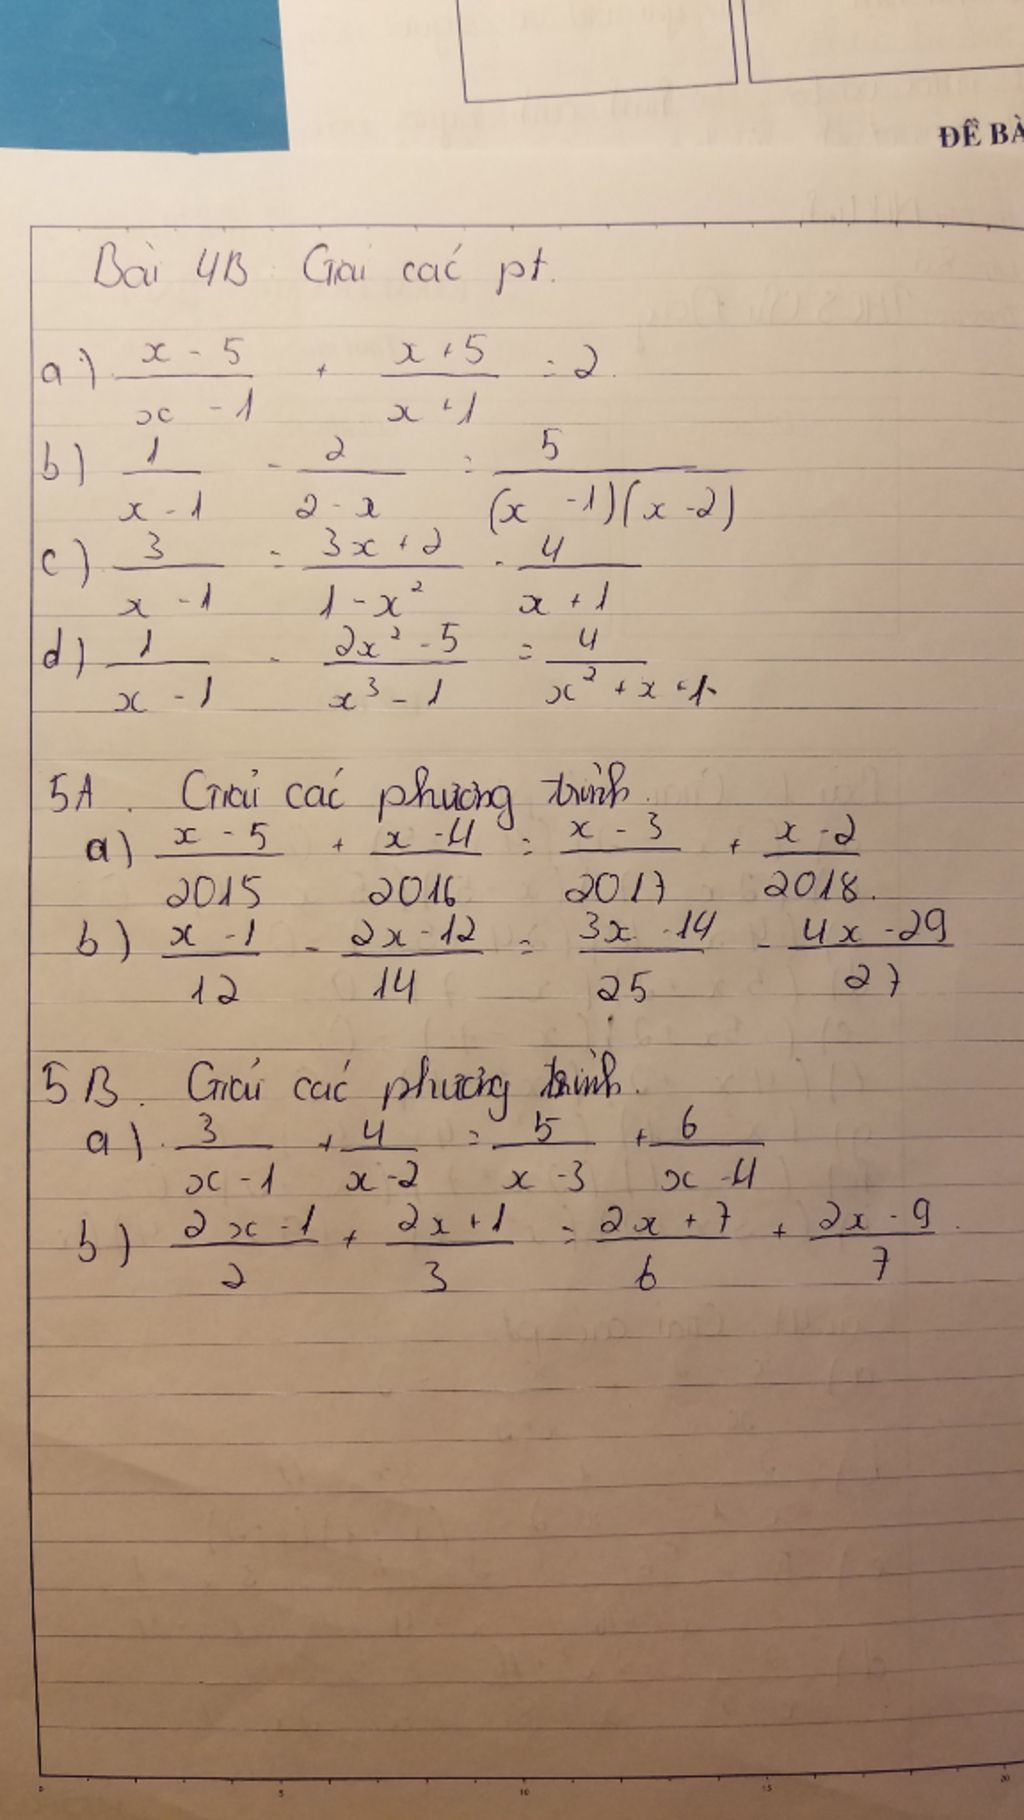 ĐỀ BÀ
Bài 4B: Giải các pt.
a) \frac{x-5}{x-1} + \frac{x+5}{x+1} = 2.
b) \frac{1}{x-1} - \frac{2}{2-x} = \frac{5}{(x-1)(x-2)}
c) \frac{3}{x-1} = \frac{3x+2}{1-x^2} - \frac{4}{x+1}
d) \frac{1}{x-1} - \frac{2x^2-5}{x^3-1} = \frac{4}{x^2+x+1}.
5A. Giải các phương trình.
a) \frac{x-5}{2015} + \frac{x-4}{2016} = \frac{x-3}{2017} + \frac{x-2}{2018}.
b) \frac{x-1}{12} - \frac{2x-12}{14} = \frac{3x-14}{25} - \frac{4x-29}{27}
5B. Giải các phương trình.
a) \frac{3}{x-1} + \frac{4}{x-2} = \frac{5}{x-3} + \frac{6}{x-4}
b) \frac{2x-1}{2} + \frac{2x+1}{3} = \frac{2x+7}{6} + \frac{2x-9}{7}.
0 5 10 15 20